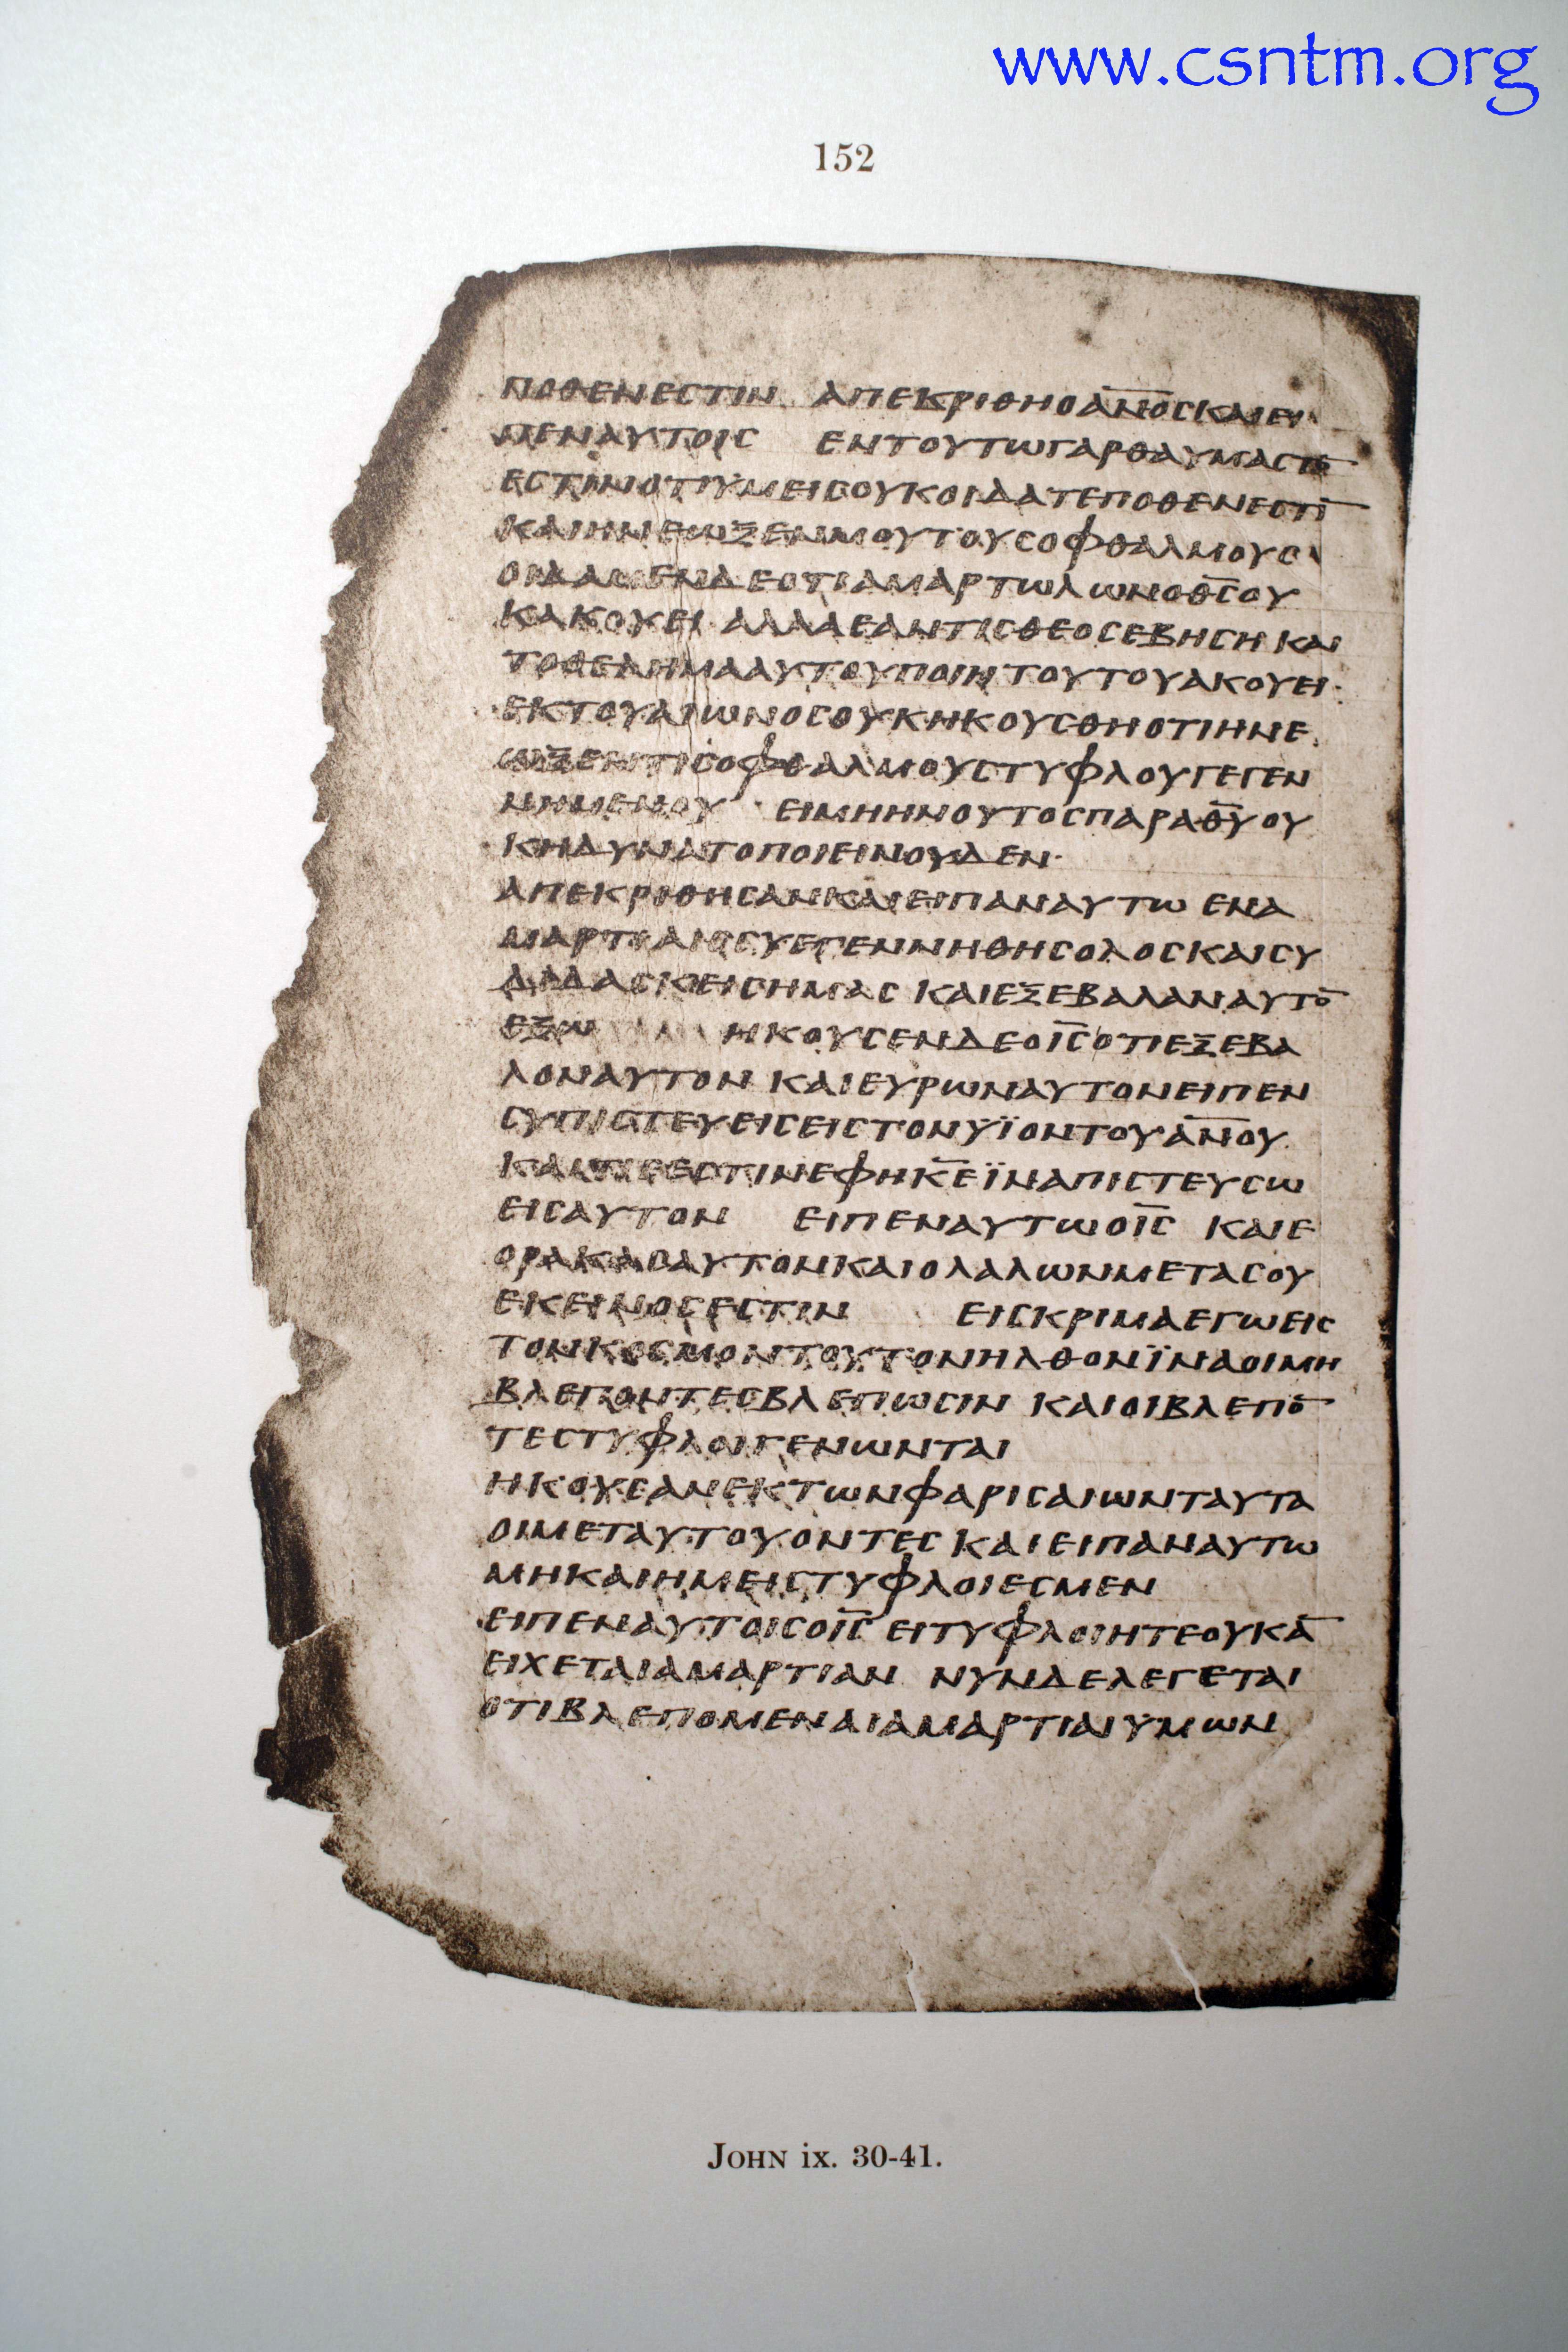 www.csntm.org
152
ΠΟΘΕΝΕϹΤΙΝ ΑΠΕΚΡΙΘΗΟΑ̅Ν̅Ο̅ϹΚΑΙΕΙ
ΠΕΝΑΥΤΟΙϹ ΕΝΤΟΥΤΩΓΑΡΘΑΥΜΑϹΤΟ̅
ΕϹΤΙΝΟΤΙΥΜΕΙϹΟΥΚΟΙΔΑΤΕΠΟΘΕΝΕϹΤΙ̅
ΚΑΙΗΝΕΩΞΕΝΜΟΥΤΟΥϹΟΦΘΑΛΜΟΥϹ
ΟΙΔΑΜΕΝΔΕΟΤΙΑΜΑΡΤΩΛΩΝΟΘ̅Ϲ̅ΟΥ
ΚΑΚΟΥΕΙ· ΑΛΛΑΕΑΝΤΙϹΘΕΟϹΕΒΗϹΗ ΚΑΙ
ΤΟΘΕΛΗΜΑΑΥΤΟΥΠΟΙΗ ΤΟΥΤΟΥΑΚΟΥΕΙ·
ΕΚΤΟΥΑΙΩΝΟϹΟΥΚΗΚΟΥϹΘΗΟΤΙΗΝΕ
ΩΞΕΝΤΙϹΟΦΘΑΛΜΟΥϹΤΥΦΛΟΥΓΕΓΕΝ
ΝΗΜΕΝΟΥ · ΕΙΜΗΗΝΟΥΤΟϹΠΑΡΑΘ̅Υ̅ΟΥ
ΚΗΔΥΝΑΤΟΠΟΙΕΙΝΟΥΔΕΝ·
ΑΠΕΚΡΙΘΗϹΑΝΚΑΙΕΙΠΑΝΑΥΤΩ ΕΝΑ
ΜΑΡΤΙΑΙϹϹΥΕΓΕΝΝΗΘΗϹΟΛΟϹΚΑΙϹΥ
ΔΙΔΑϹΚΕΙϹΗΜΑϹ ΚΑΙΕΞΕΒΑΛΑΝΑΥΤΟ̅
ΕΞΩ ΗΚΟΥϹΕΝΔΕΟΙ̅Ϲ̅ΟΤΙΕΞΕΒΑ
ΛΟΝΑΥΤΟΝ ΚΑΙΕΥΡΩΝΑΥΤΟΝΕΙΠΕΝ
ϹΥΠΙϹΤΕΥΕΙϹΕΙϹΤΟΝΥΪΟΝΤΟΥΑ̅Ν̅Ο̅Υ̅
ΚΑΙΤΙϹΕϹΤΙΝΕΦΗΚ̅Ε̅ΪΝΑΠΙϹΤΕΥϹΩ
ΕΙϹΑΥΤΟΝ ΕΙΠΕΝΑΥΤΩΟΙ̅Ϲ̅ ΚΑΙΕ
ΟΡΑΚΑϹΑΥΤΟΝΚΑΙΟΛΑΛΩΝΜΕΤΑϹΟΥ
ΕΚΕΙΝΟϹΕϹΤΙΝ ΕΙϹΚΡΙΜΑΕΓΩΕΙϹ
ΤΟΝΚΟϹΜΟΝΤΟΥΤΟΝΗΛΘΟΝΪΝΑΟΙΜΗ
ΒΛΕΠΟΝΤΕϹΒΛΕΠΩϹΙΝ ΚΑΙΟΙΒΛΕΠΟ̅
ΤΕϹΤΥΦΛΟΙΓΕΝΩΝΤΑΙ
ΗΚΟΥϹΑΝΕΚΤΩΝΦΑΡΙϹΑΙΩΝΤΑΥΤΑ
ΟΙΜΕΤΑΥΤΟΥΟΝΤΕϹ ΚΑΙΕΙΠΑΝΑΥΤΩ
ΜΗΚΑΙΗΜΕΙϹΤΥΦΛΟΙΕϹΜΕΝ
ΕΙΠΕΝΑΥΤΟΙϹΟΙ̅Ϲ̅ ΕΙΤΥΦΛΟΙΗΤΕΟΥΚΑ̅
ΕΙΧΕΤΑΙΑΜΑΡΤΙΑΝ ΝΥΝΔΕΛΕΓΕΤΑΙ
ΟΤΙΒΛΕΠΟΜΕΝΑΙΑΜΑΡΤΙΑΙΥΜΩΝ
JOHN ix. 30-41.